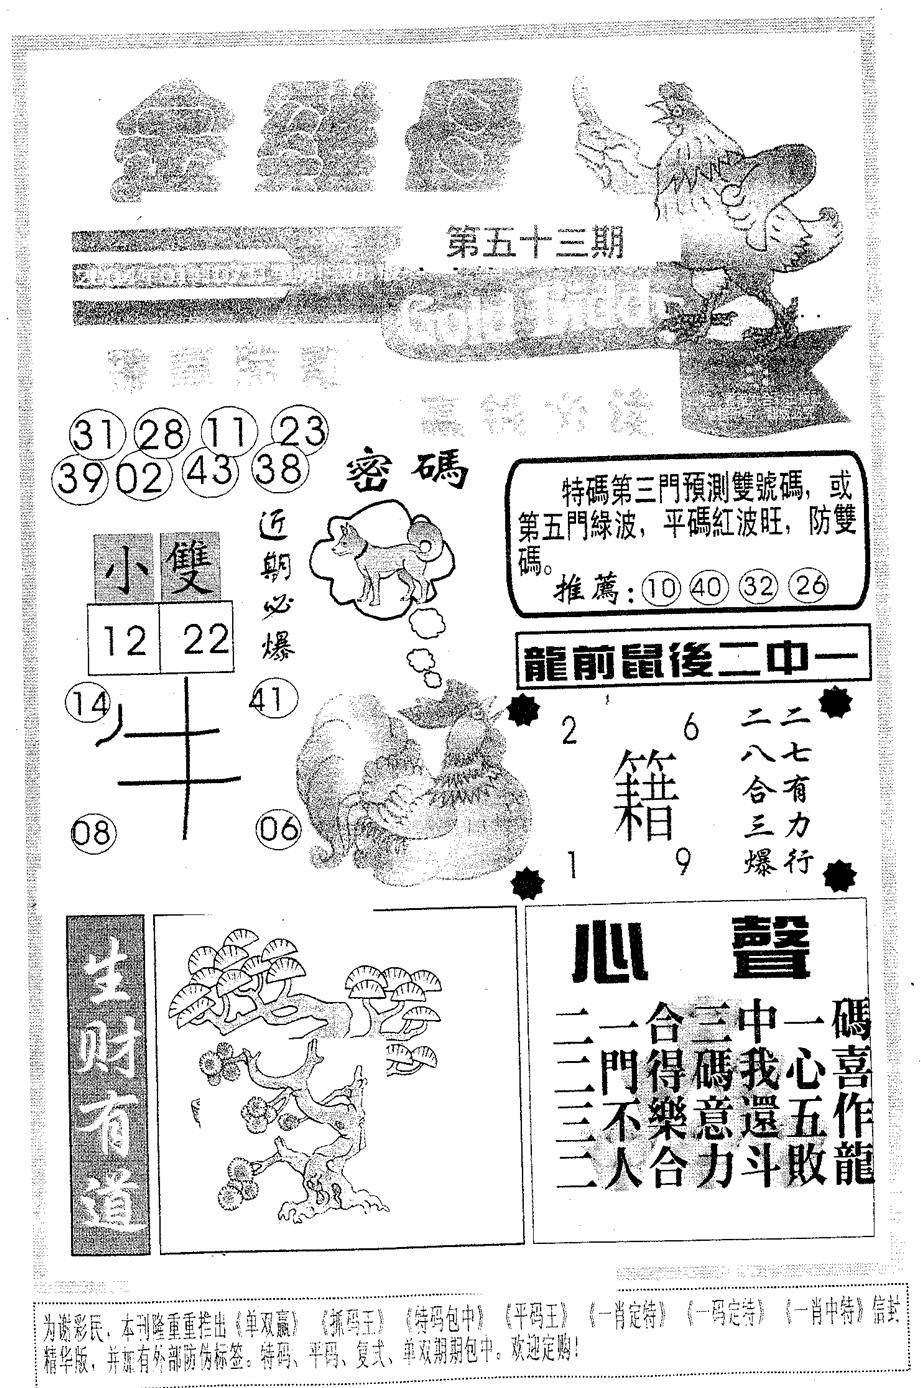 金雞报
第五十三期
Gold Bidd
31 28 11 23
39 02 43 38
密碼
特碼第三門預測雙號碼，或
第五門綠波，平碼紅波旺，防雙
碼。
推薦：10 40 32 26
近期必爆
小 雙
12 22
龍前鼠後二中一
14 41
牛
08 06
2 6
籍
1 9
二七有力行
二八合三爆
生财有道
心聲
二一合三中一碼
二門得碼我心喜
三不樂意還五作
二人合力斗敗龍
为谢彩民，本刊隆重重推出《单双赢》《抓码王》《特码包中》《平码王》《一肖定特》《一码定特》《一肖中特》信封
精华版，并加有外部防伪标签。特码、平码、复式、单双期期包中。欢迎定购！